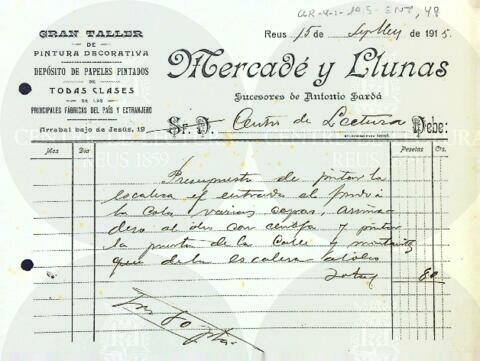 CLR-4-1-10.5-ENT, 48
GRAN TALLER
DE
PINTURA DECORATIVA
DEPÓSITO DE PAPELES PINTADOS
DE
TODAS CLASES
DE LAS
PRINCIPALES FÁBRICAS DEL PAÍS Y EXTRANJERO
Arrabal bajo de Jesús, 19
Reus 15 de de 1915.
Mercadé y Llunas
Sucesores de Antonio Sardá
Sr. D. Centro de Lectura Debe:
Mes Día Pesetas Cts.
Presupuesto de pintar la
localiza entrada al
la cola varias capas,
al oleo con cenefa y pintar
la puerta de la Calle y
que de la escalera al oleo
Total 80